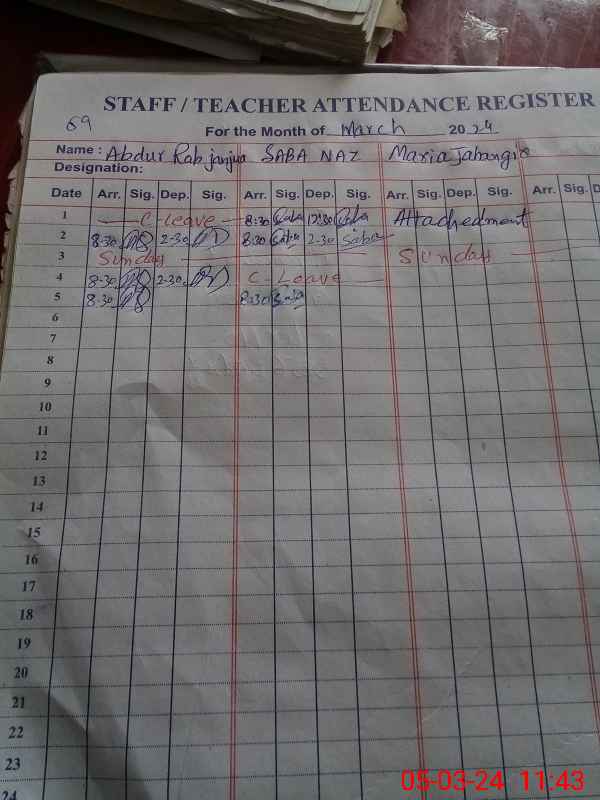 STAFF / TEACHER ATTENDANCE REGISTER
69
For the Month of March 2024
Name : Abdur Rab janjua SABA NAZ Maria Jahangir
Designation:
Date Arr. Sig. Dep. Sig. Arr. Sig. Dep. Sig. Arr. Sig. Dep. Sig. Arr. Sig. D
1 C-Leave 8:30 Saba 12:30 Saba Attachedment
2 8-30 2-30 8:30 Saba 2-30 Saba
3 Sunday Sunday
4 8-30 2-30 C-Leave
5 8-30 8:30 Saba
6
7
8
9
10
11
12
13
14
15
16
17
18
19
20
21
22
23
24
05-03-24 11:43